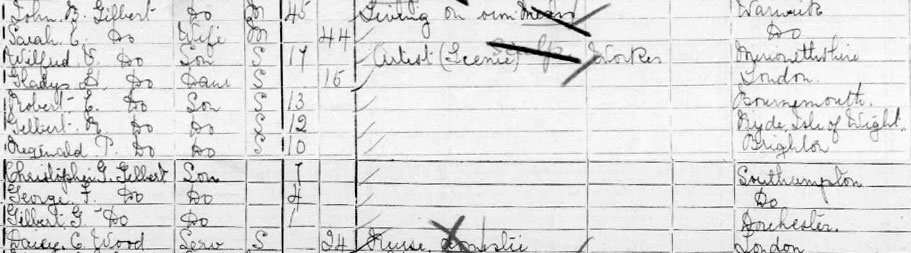 John B. Gilbert Do M 45 Living on own means Warwick
Sarah E. Do Wife M 44 Do
Wilfred V. Do Son S 17 Artist (Scenic) Worker Merionethshire
Gladys H. Do Daur S 16 London.
Robert E. Do Son S 13 Bournemouth.
Gilbert R. Do Do S 12 Ryde, Isle of Wight.
Reginald P. Do Do S 10 Brighton
Christopher G. Gilbert Son 7 Southampton
George F. Do Do 4 Do
Gilbert G Do Do 1 Dorchester.
Daisey E Wood Serv S 24 Nurse, domestic London